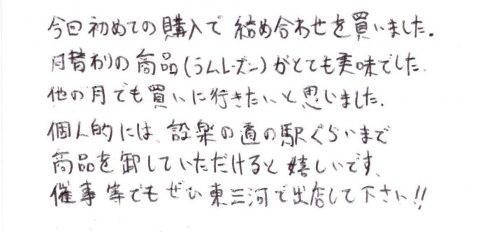 今回初めての購入で詰め合わせを買いました。
月替わりの商品(ラムレーズン)がとても美味でした。
他の月でも買いに行きたいと思いました。
個人的には、設楽の道の駅ぐらいまで
商品を卸していただけると嬉しいです。
催事等でもぜひ東三河で出店して下さい!!